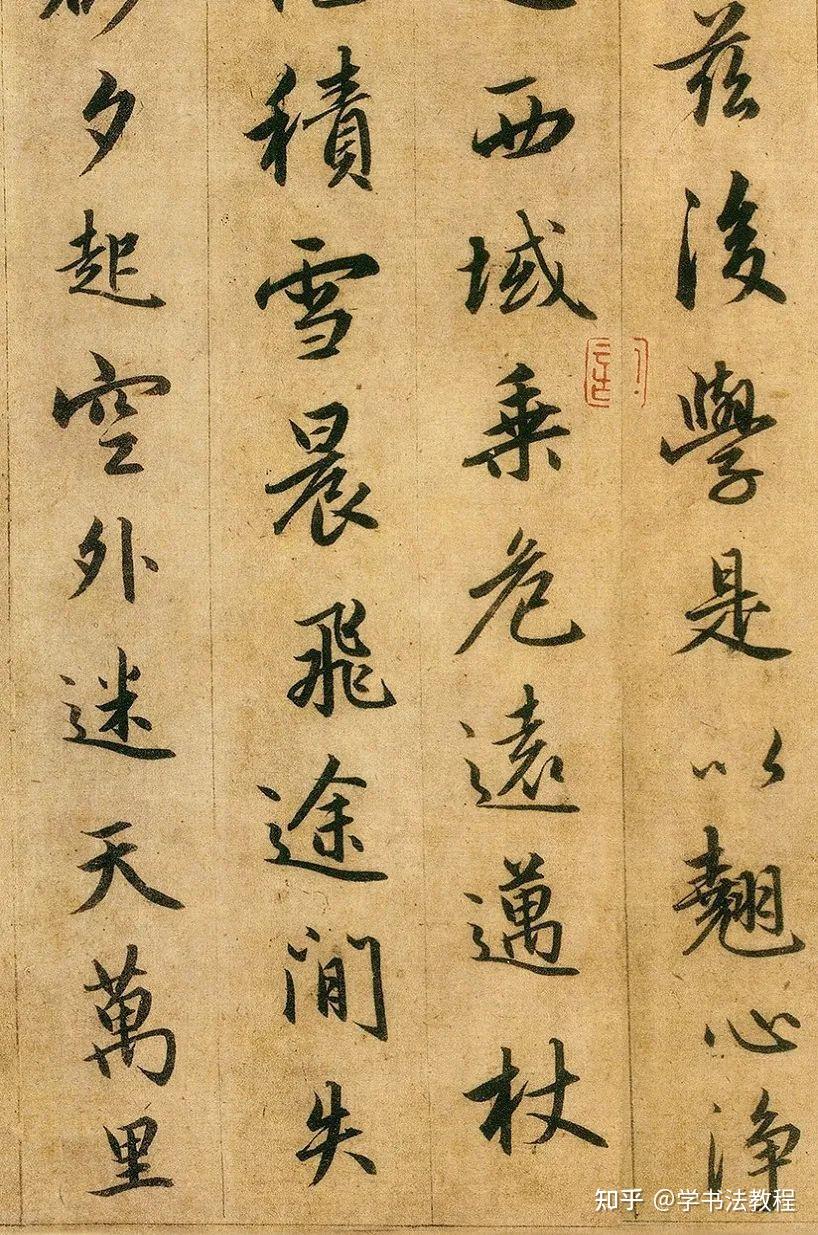 兹後學是以翹心淨
西域乗危遠邁杖
積雪晨飛途間失
夕起空外迷天萬里
知乎 @学书法教程